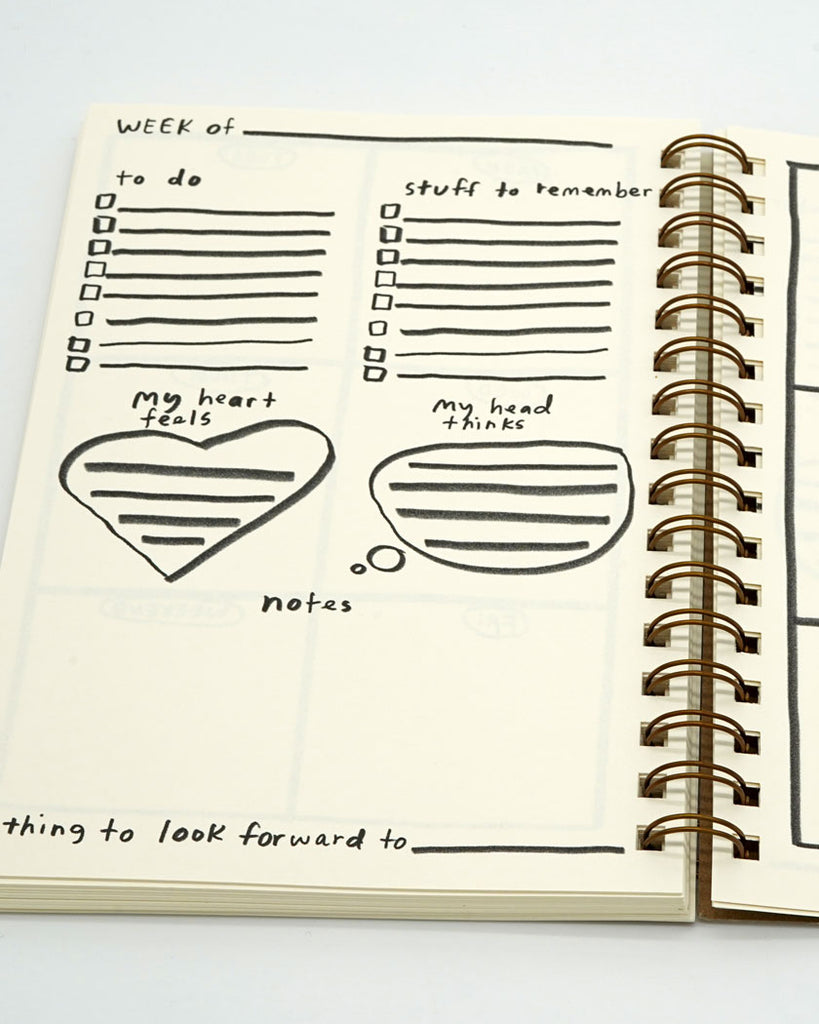 WEEK of
to do
stuff to remember
my heart
feels
my head
thinks
notes
thing to look forward to